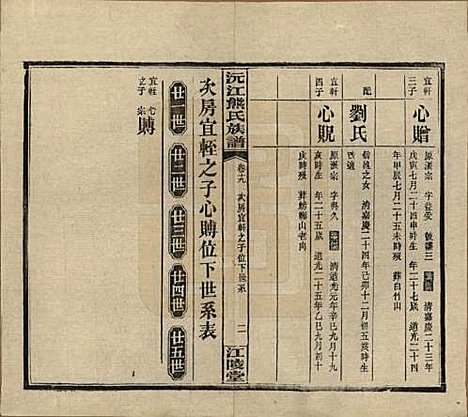 宜軒
三子
心贈
原派宗 字益受
清嘉慶二十三年
戊寅九月二十四申時生
年二十七歲
道光二十四
年甲辰七月二十五未時歿
葬白竹山
配
劉氏
之女
清嘉慶二十四年己卯十二月初五亥時生
宜軒
四子
心貺
原派宗
清道光元年辛巳九月十九
亥時生
年二十五歲
道光二十五年乙巳九月四十
沅江熊氏族譜
卷十九
次房宜軒之子位下世系
二
江陵堂
次房宜軽之子心賻位下世系表
廿一世
廿二世
廿三世
廿四世
廿五世
宜軒七
之子
賻